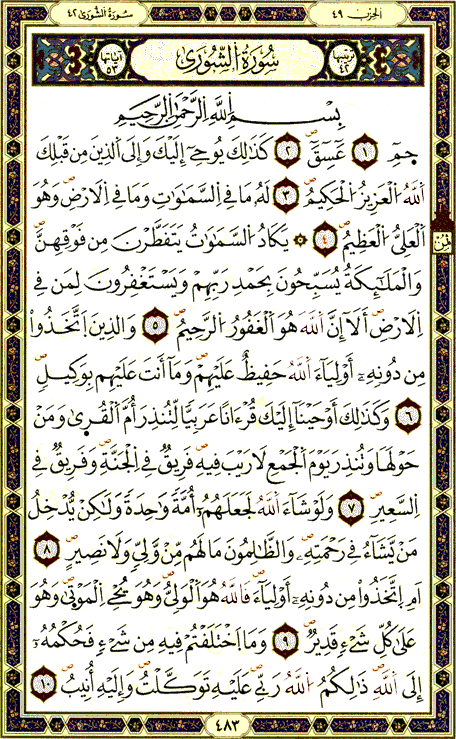 الحزب ٤٩
سورة الشورى ٤٢
ترتيبها ٤٢ سُورَةُ الشُّورَى آياتها ٥٣
بِسْمِ اللَّهِ الرَّحْمَٰنِ الرَّحِيمِ
حمٓ ١ عٓسٓقٓ ٢ كَذَٰلِكَ يُوحِےٓ إِلَيْكَ وَإِلَى الَّذِينَ مِن قَبْلِكَ
اَللَّهُ الْعَزِيزُ الْحَكِيمُ ٣ لَهُۥ مَا فِى السَّمَٰوَٰتِ وَمَا فِى الْأَرْضِ وَهُوَ
اَلْعَلِىُّ الْعَظِيمُ ٤ يَكَادُ السَّمَٰوَٰتُ يَتَفَطَّرْنَ مِن فَوْقِهِنَّ
وَالْمَلَٰٓئِكَةُ يُسَبِّحُونَ بِحَمْدِ رَبِّهِمْ وَيَسْتَغْفِرُونَ لِمَن فِى
اِلْأَرْضِ أَلَآ إِنَّ اَللَّهَ هُوَ الْغَفُورُ الرَّحِيمُ ٥ وَالَّذِينَ اَتَّخَذُواْ
مِن دُونِهِۦٓ أَوْلِيَآءَ اَللَّهُ حَفِيظٌ عَلَيْهِمْ وَمَآ أَنتَ عَلَيْهِم بِوَكِيلٍ
٦ وَكَذَٰلِكَ أَوْحَيْنَآ إِلَيْكَ قُرْءَانًا عَرَبِيًّا لِّتُنذِرَ أُمَّ الْقُرَىٰ وَمَنْ
حَوْلَهَا وَتُنذِرَ يَوْمَ الْجَمْعِ لَا رَيْبَ فِيهِ فَرِيقٌ فِى الْجَنَّةِ وَفَرِيقٌ فِى
اِلسَّعِيرِ ٧ وَلَوْ شَآءَ اَللَّهُ لَجَعَلَهُمْ أُمَّةً وَٰحِدَةً وَلَٰكِنْ يُّدْخِلُ
مَنْ يَّشَآءُ فِى رَحْمَتِهِۦ وَالظَّٰلِمُونَ مَا لَهُم مِّنْ وَّلِىٍّ وَلَا نَصِيرٍ ٨
أَمِ اِتَّخَذُواْ مِن دُونِهِۦٓ أَوْلِيَآءَ فَاللَّهُ هُوَ الْوَلِىُّ وَهُوَ يُحْىِ الْمَوْتَىٰ وَهُوَ
عَلَىٰ كُلِّ شَىْءٍ قَدِيرٌ ٩ وَمَا اَخْتَلَفْتُمْ فِيهِ مِن شَىْءٍ فَحُكْمُهُۥٓ
إِلَى اَللَّهِ ذَٰلِكُمُ اللَّهُ رَبِّى عَلَيْهِ تَوَكَّلْتُ وَإِلَيْهِ أُنِيبُ ١٠
٤٨٣